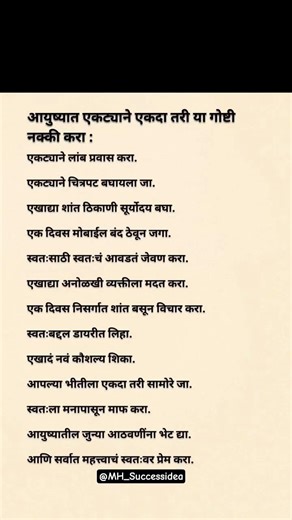 आयुष्यात एकट्याने एकदा तरी या गोष्टी
नक्की करा :
एकट्याने लांब प्रवास करा.
एकट्याने चित्रपट बघायला जा.
एखाद्या शांत ठिकाणी सूर्योदय बघा.
एक दिवस मोबाईल बंद ठेवून जगा.
स्वतःसाठी स्वतःचं आवडतं जेवण करा.
एखाद्या अनोळखी व्यक्तीला मदत करा.
एक दिवस निसर्गात शांत बसून विचार करा.
स्वतःबद्दल डायरीत लिहा.
एखादं नवं कौशल्य शिका.
आपल्या भीतीला एकदा तरी सामोरे जा.
स्वतःला मनापासून माफ करा.
आयुष्यातील जुन्या आठवणींना भेट द्या.
आणि सर्वात महत्त्वाचं स्वतःवर प्रेम करा.
@MH_Successidea